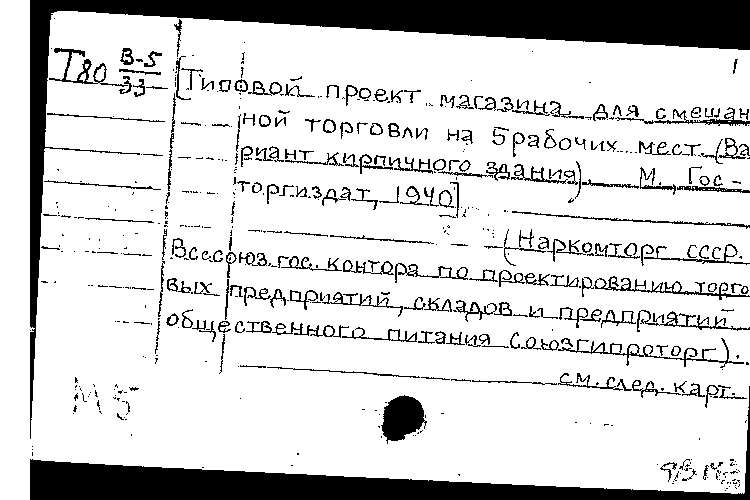 1
Т80 В-5/33
[Типовой проект магазина для смешан
ной торговли на 5 рабочих мест. (Ва
риант кирпичного здания). М., Гос-
торгиздат, 1940].
(Наркомторг СССР.
Всесоюз. гос. контора по проектированию торго
вых предприятий, складов и предприятий
общественного питания Союзгипроторг).
см. след. карт.
М5